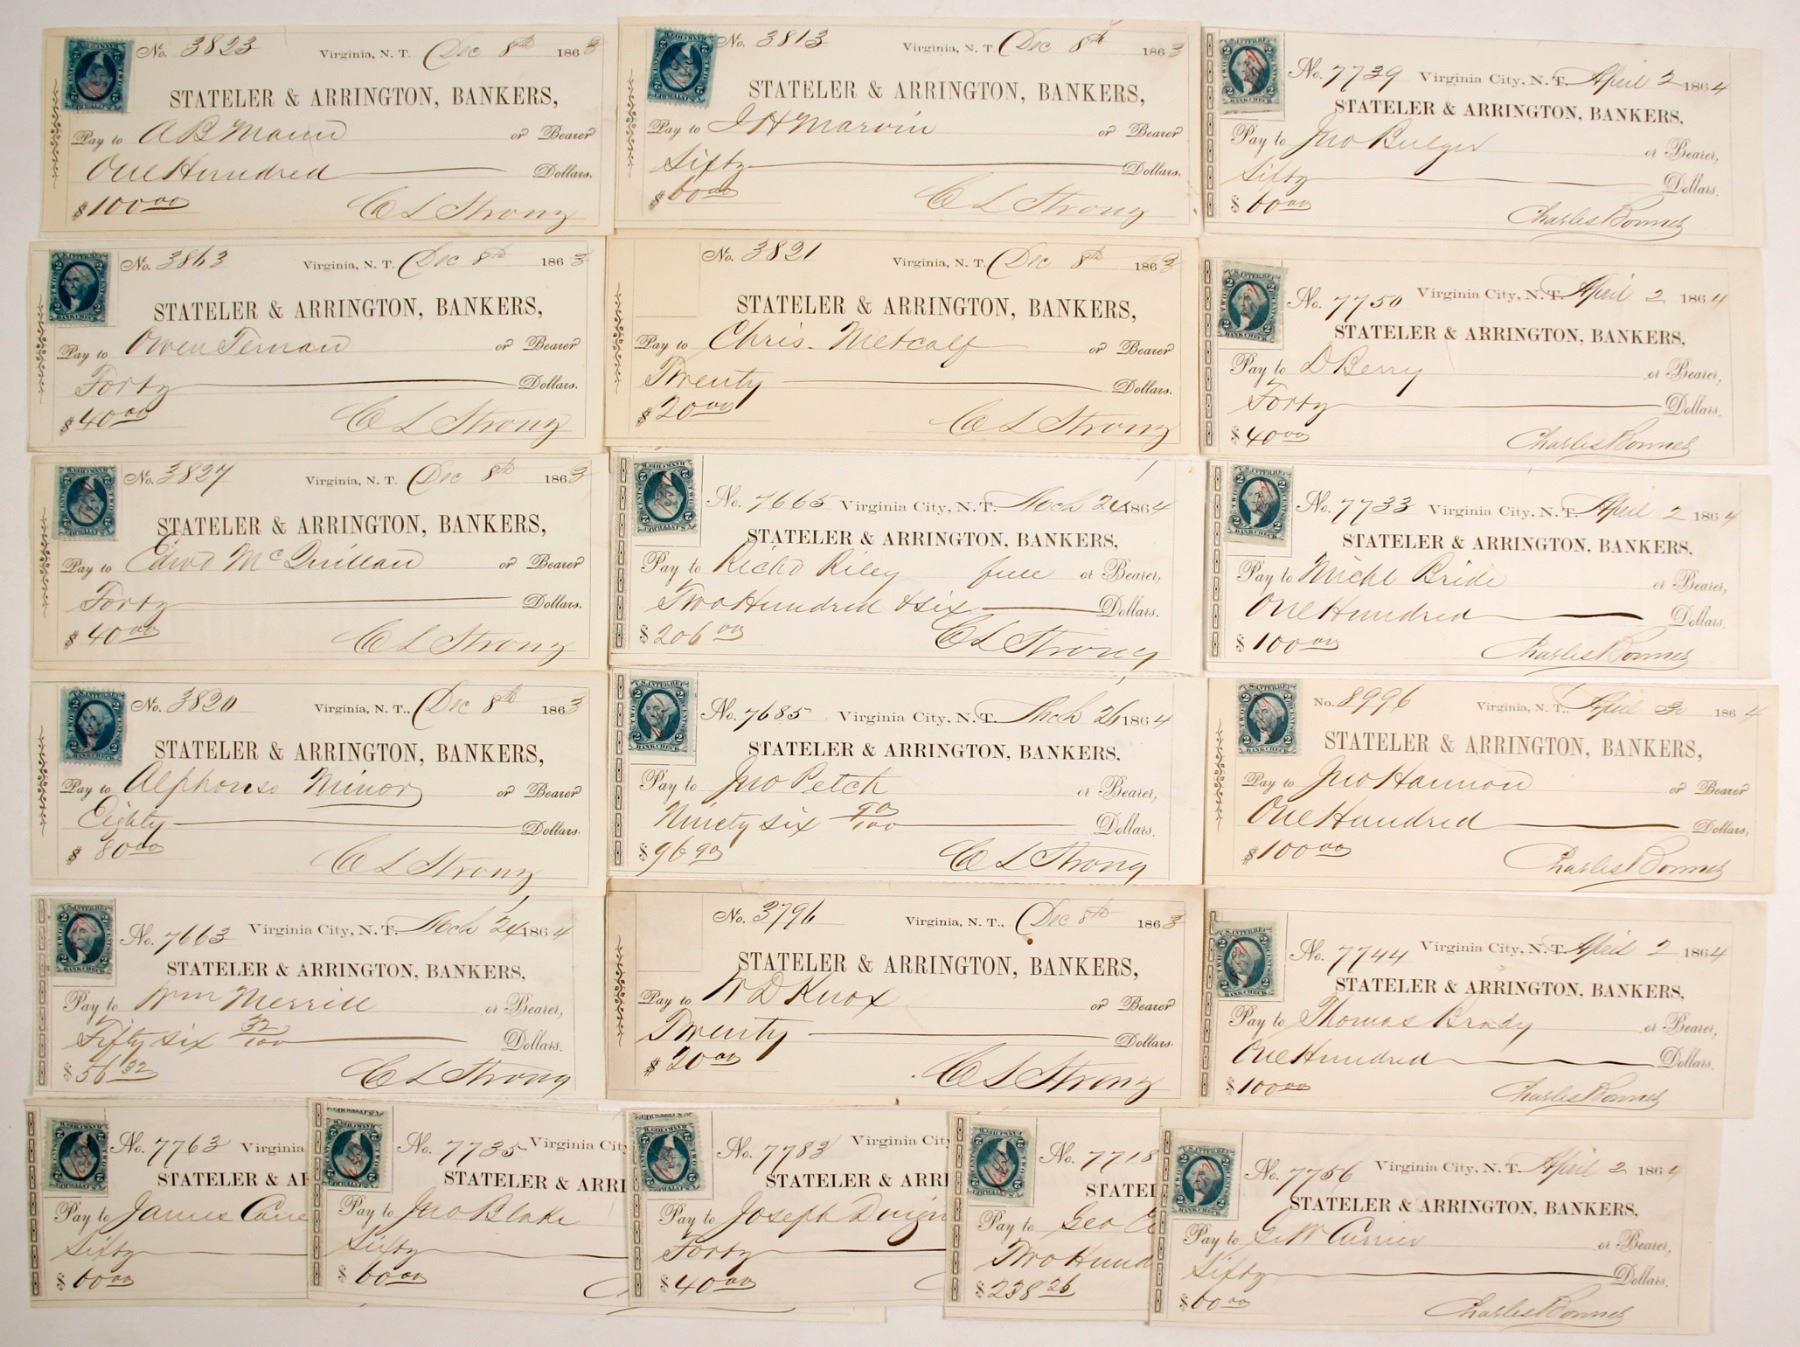 No. 3823 Virginia, N. T. Dec 8th 1863
STATELER & ARRINGTON, BANKERS,
Pay to A B Mann or Bearer
One Hundred Dollars.
$100.00 C L Strong
No. 3813 Virginia, N. T. Dec 8th 1863
STATELER & ARRINGTON, BANKERS,
Pay to J H Marvin or Bearer
Sixty Dollars.
$60.00 C L Strong
No. 7739 Virginia City, N. T. April 2 1864
STATELER & ARRINGTON, BANKERS,
Pay to Jno Bulger or Bearer,
Sixty Dollars.
$60.00 Charles Bonner
No. 3863 Virginia, N. T. Dec 8th 1863
STATELER & ARRINGTON, BANKERS,
Pay to Owen Ternan or Bearer
Forty Dollars.
$40.00 C L Strong
No. 3821 Virginia, N. T. Dec 8th 1863
STATELER & ARRINGTON, BANKERS,
Pay to Chris. Metcalf or Bearer
Twenty Dollars.
$20.00 C L Strong
No. 7750 Virginia City, N. T. April 2 1864
STATELER & ARRINGTON, BANKERS,
Pay to D Berry or Bearer,
Forty Dollars.
$40.00 Charles Bonner
No. 3827 Virginia, N. T. Dec 8th 1863
STATELER & ARRINGTON, BANKERS,
Pay to Edwd McQuillan or Bearer
Forty Dollars.
$40.00 C L Strong
No. 7665 Virginia City, N. T. Mch 24 1864
STATELER & ARRINGTON, BANKERS,
Pay to Richd Riley full or Bearer,
Two Hundred & Six Dollars.
$206.00 C L Strong
No. 7733 Virginia City, N. T. April 2 1864
STATELER & ARRINGTON, BANKERS,
Pay to Michl Bride or Bearer
One Hundred Dollars.
$100.00 Charles Bonner
No. 3820 Virginia, N. T., Dec 8th 1863
STATELER & ARRINGTON, BANKERS,
Pay to Alphonso Minor or Bearer
Eighty Dollars.
$80.00 C L Strong
No. 7685 Virginia City, N. T. Mch 26 1864
STATELER & ARRINGTON, BANKERS.
Pay to Jno Petch or Bearer,
Ninety six 90/100 Dollars.
$96.90 C L Strong
No. 8996 Virginia, N. T., April 1864
STATELER & ARRINGTON, BANKERS,
Pay to Jno Hannon or Bearer
One Hundred Dollars,
$100.00 Charles Bonner
No. 7663 Virginia City, N. T. Mch 24 1864
STATELER & ARRINGTON, BANKERS,
Pay to Wm Merrill or Bearer,
Fifty six 32/100 Dollars.
$56.32 C L Strong
No. 3796 Virginia, N. T., Dec 8th 1863
STATELER & ARRINGTON, BANKERS,
Pay to W D Knox or Bearer
Twenty Dollars.
$20.00 C L Strong
No. 7744 Virginia City, N. T. April 2 1864
STATELER & ARRINGTON, BANKERS,
Pay to Thomas Brady or Bearer,
One Hundred Dollars.
$100.00 Charles Bonner
No. 7763 Virginia
STATELER & AR
Pay to James
Sixty
$60.00
No. 7735 Virginia City
STATELER & ARRI
Pay to Jno Blake
Sixty
$60.00
No. 7783 Virginia City
STATELER & ARRI
Pay to Joseph
Forty
$40.00
No. 7718
STATEL
Pay to Geo
Two Hund
$238.26
No. 7756 Virginia City, N. T. April 2 1864
STATELER & ARRINGTON, BANKERS,
Pay to G W Currier or Bearer,
Sixty Dollars.
$60.00 Charles Bonner